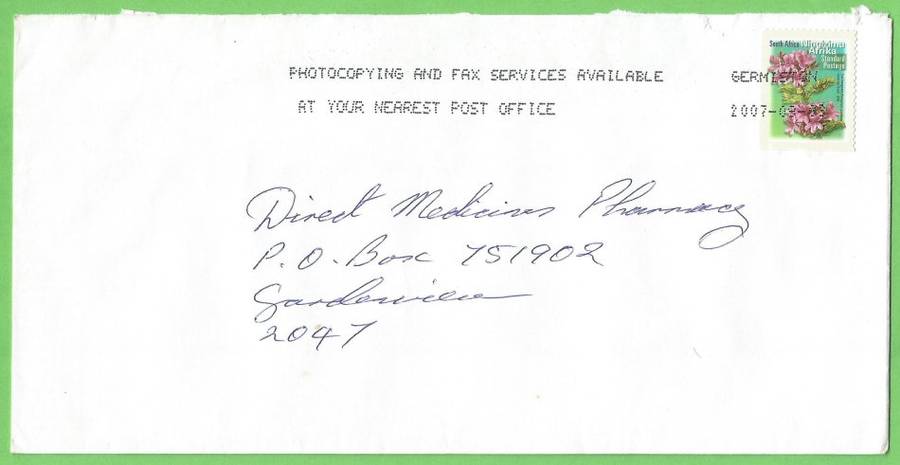 PHOTOCOPYING AND FAX SERVICES AVAILABLE
AT YOUR NEAREST POST OFFICE
GERMISTON
2007-0
South Africa
Afrika
Standard
Postage
Direct Medicines Pharmacy
P.O. Box 751902
Gardenview
2047